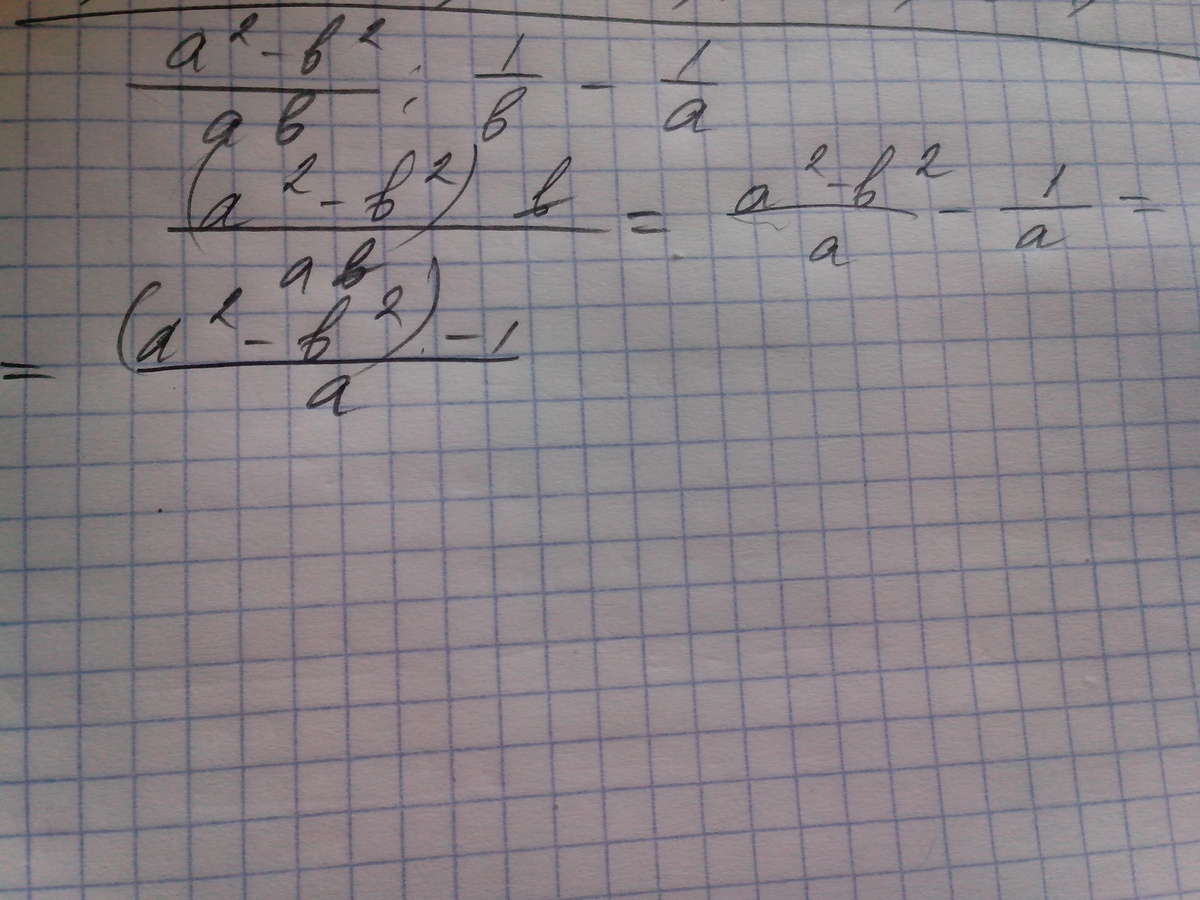 a² - b² / ab : 1/b - 1/a
(a² - b²) b / ab = a² - b² / a - 1/a =
= (a² - b²) - 1 / a